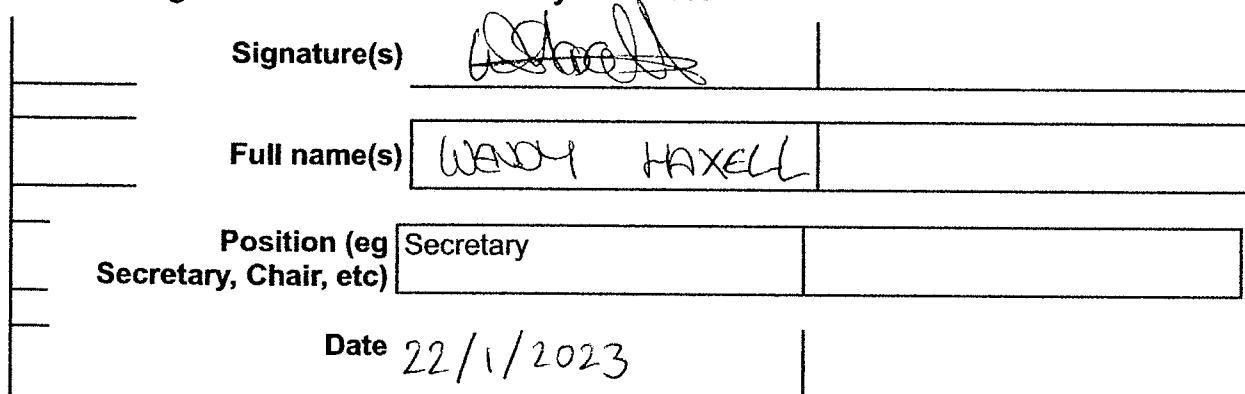 Signature(s)
Full name(s) WENDY HAXELL
Position (eg Secretary
Secretary, Chair, etc)
Date 22/1/2023